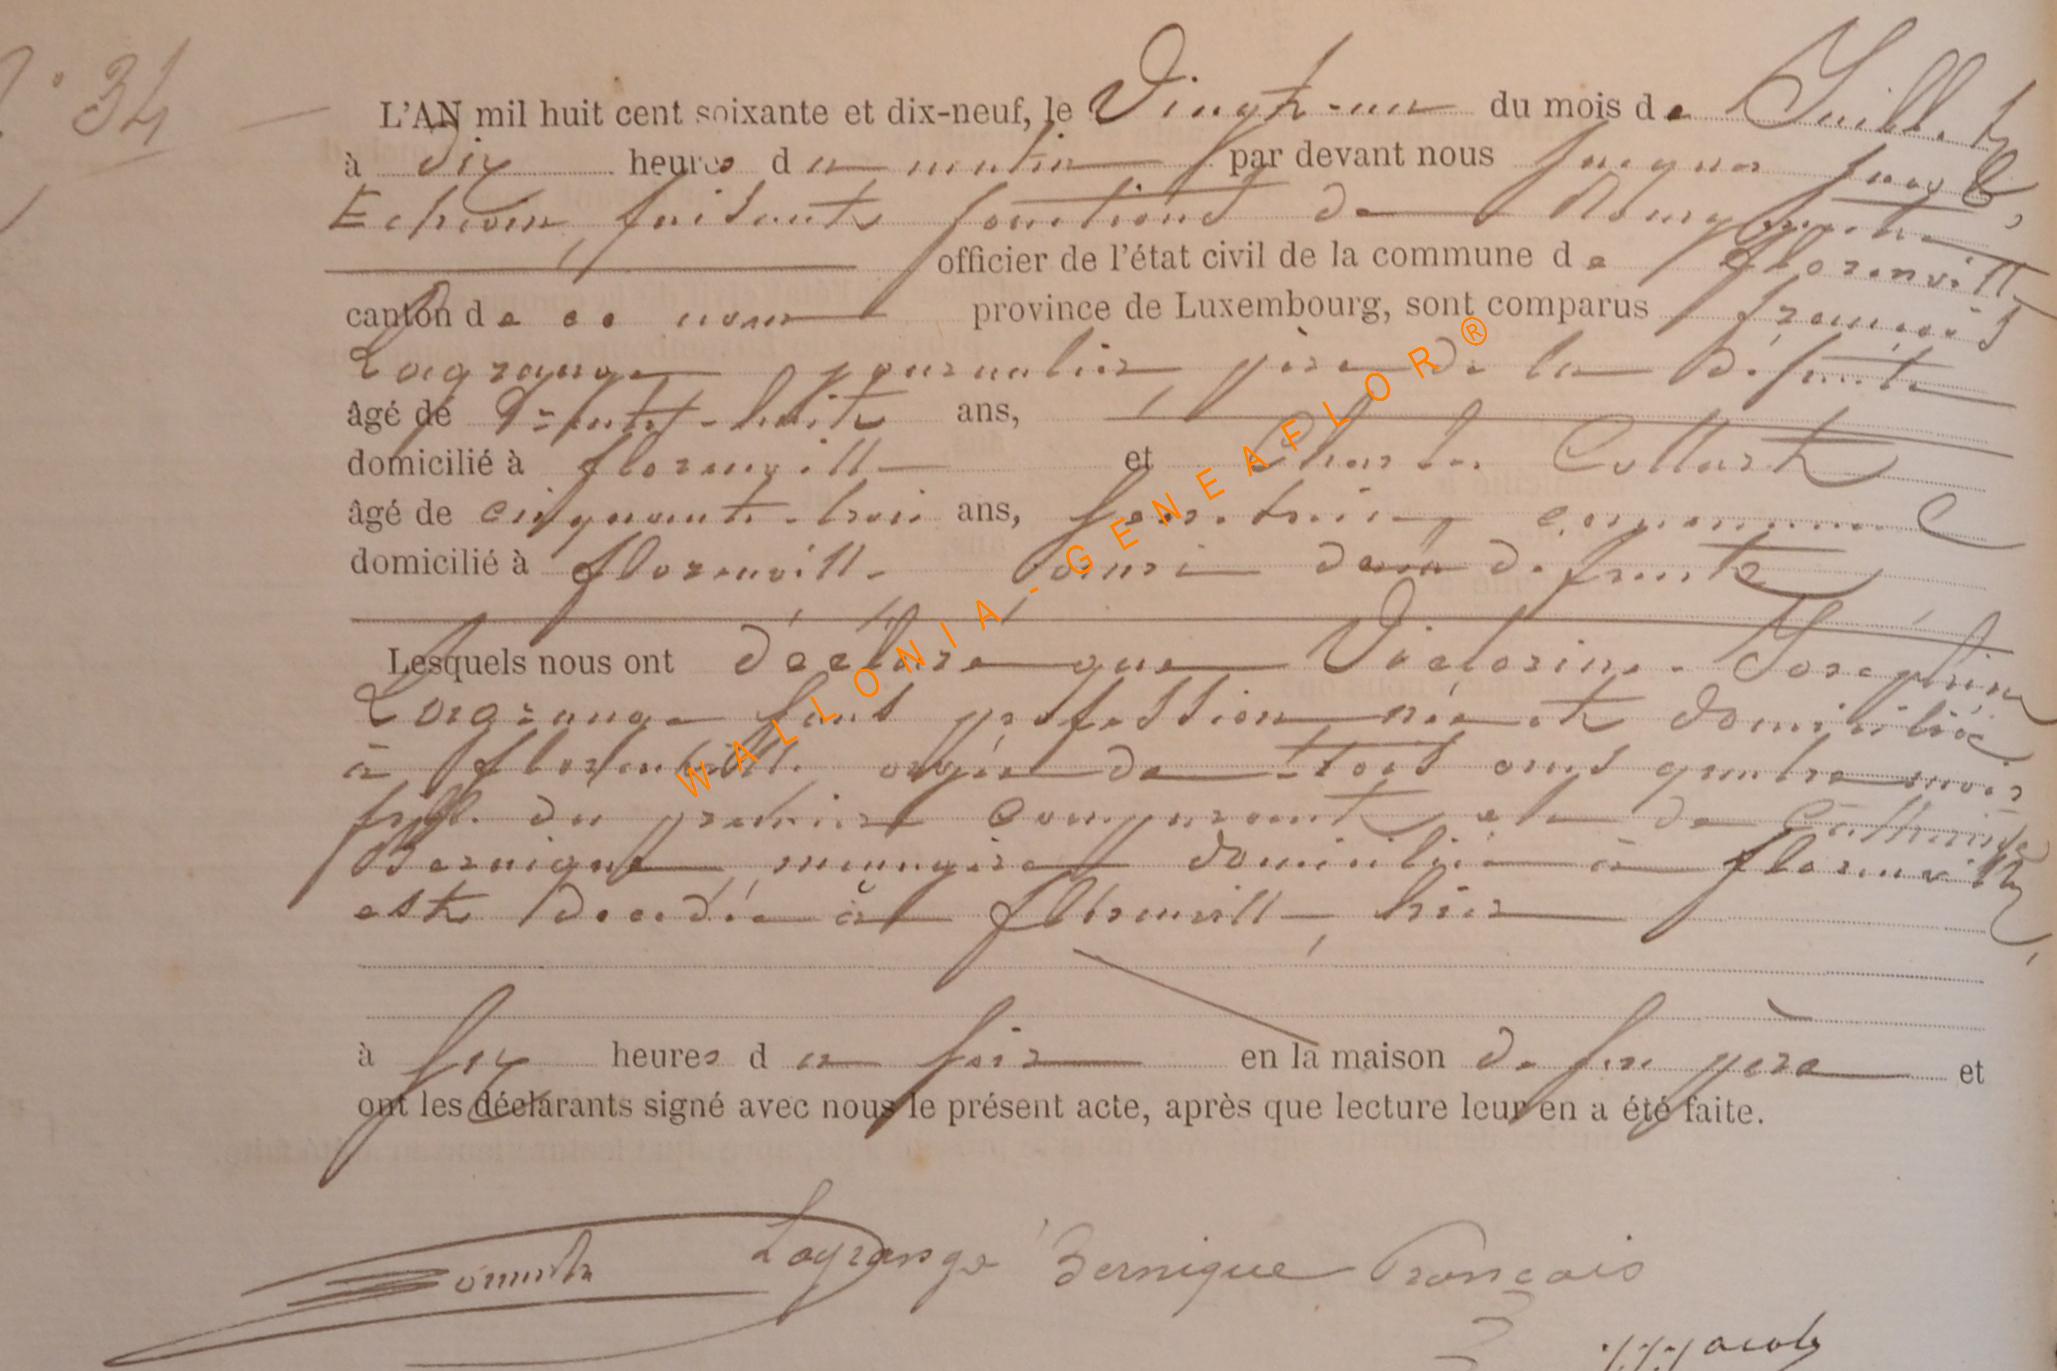 N° 34
L'AN mil huit cent soixante et dix-neuf, le Vingt-un du mois de Juillet
à dix heures du matin par devant nous Jacques
Echevin, faisant fonctions de Bourgmestre
officier de l'état civil de la commune de Florenville
canton de ce nom province de Luxembourg, sont comparus François
Lagrange journalier, père de la défunte
âgé de trente-huit ans,
domicilié à florenville et Charles Collart
âgé de cinquante-trois ans, secrétaire communal
domicilié à florenville ami de la défunte
Lesquels nous ont déclaré que Victorine-Joséphine
Lagrange sans profession née et domiciliée
à florenville âgée de trois ans quatre mois
fille du premier comparant et de Catherine
Bernique, ménagère domiciliée à florenville,
est décédée à florenville, hier
à six heures du soir en la maison de son père et
ont les déclarants signé avec nous le présent acte, après que lecture leur en a été faite.
Lagrange Bernique François
Jacob
WALLONIA-GENEAFLOR®